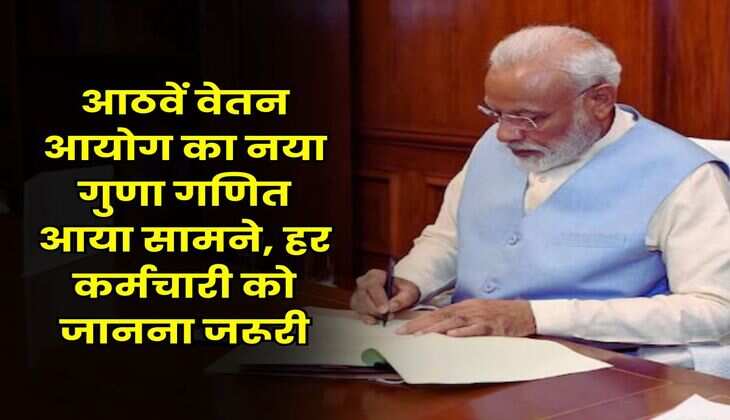 आठवें वेतन
आयोग का नया
गुणा गणित
आया सामने, हर
कर्मचारी को
जानना जरूरी